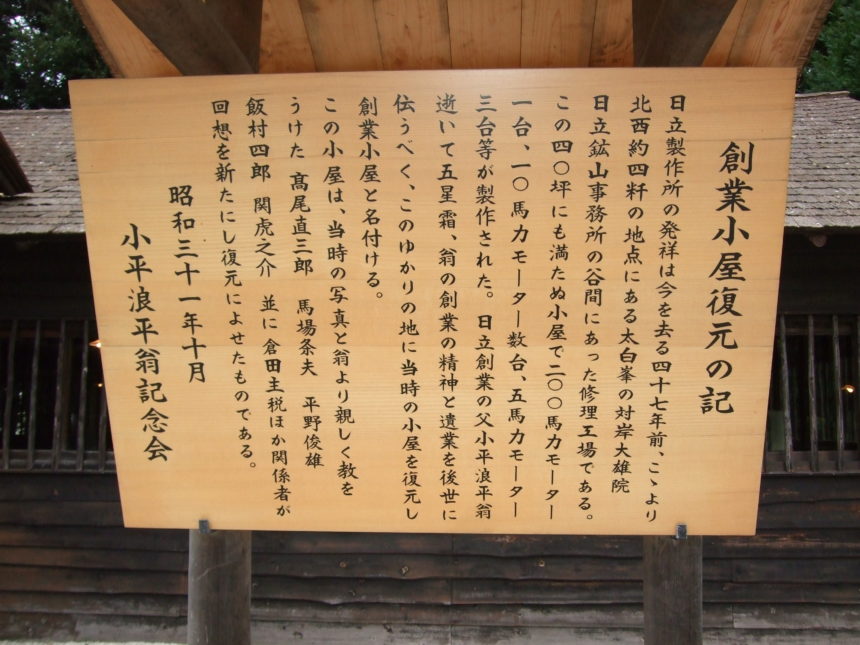 創業小屋復元の記
日立製作所の発祥は今を去る四十七年前、こゝより
北西約四粁の地点にある太白峯の対岸大雄院
日立鉱山事務所の谷間にあった修理工場である。
この四〇坪にも満たぬ小屋で二〇〇馬力モーター
一台、一〇馬力モーター数台、五馬力モーター
三台等が製作された。日立創業の父小平浪平翁
逝いて五星霜、翁の創業の精神と遺業を後世に
伝うべく、このゆかりの地に当時の小屋を復元し
創業小屋と名付ける。
この小屋は、当時の写真と翁より親しく教を
うけた 高尾直三郎 馬場粂夫 平野俊雄
飯村四郎 関虎之介 並に倉田主税ほか関係者が
回想を新たにし復元によせたものである。
昭和三十一年十月
小平浪平翁記念会